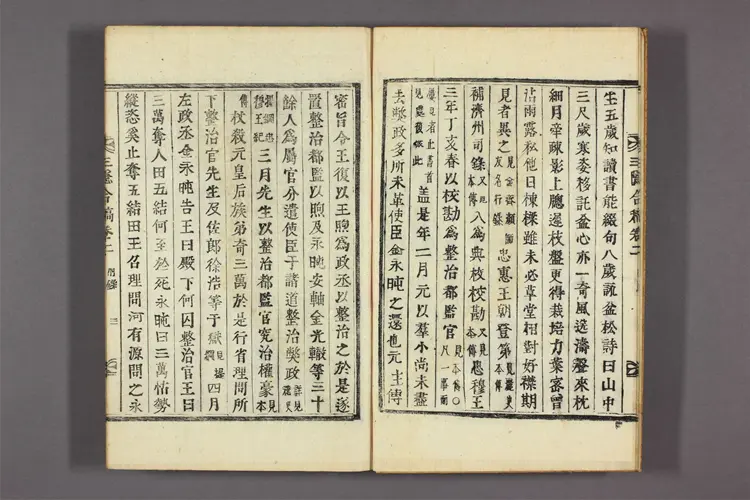 生五歲知讀書能綴句八歲詠盆松詩曰山中
三尺歲寒姿移託盆心亦一奇風送濤聲來枕
細月牽疎影上牎遲枝盤更得栽培力葉密曾
沾雨露私他日棟樑雖未必草堂相對好襟期
見者異之 忠惠王朝登第
補濟州司錄又見本傳入為典校校勘又見本傳忠穆王
三年丁亥春以校勘為整治都監官
蓋是年二月元以羣小尚未盡
去獘政多所未革使臣金永旽之還也元主傳
密旨令王復以王煦為政丞以整治之於是遂
置整治都監以煦及永旽安軸金光轍等三十
餘人為屬官分遣使臣于諸道整治獘政
三月先生以整治都監官究治權豪
杖殺元皇后族弟奇三萬於是行省理問所
下整治官先生及佐郎徐浩等于獄 四月
左政丞金永旽告王曰殿下何囚整治官王曰
三萬奪人田五結何至於死永旽曰三萬怙勢
縱恣奚止奪五結田王召理問河有源問之永
三隱合稿卷二 附錄 三